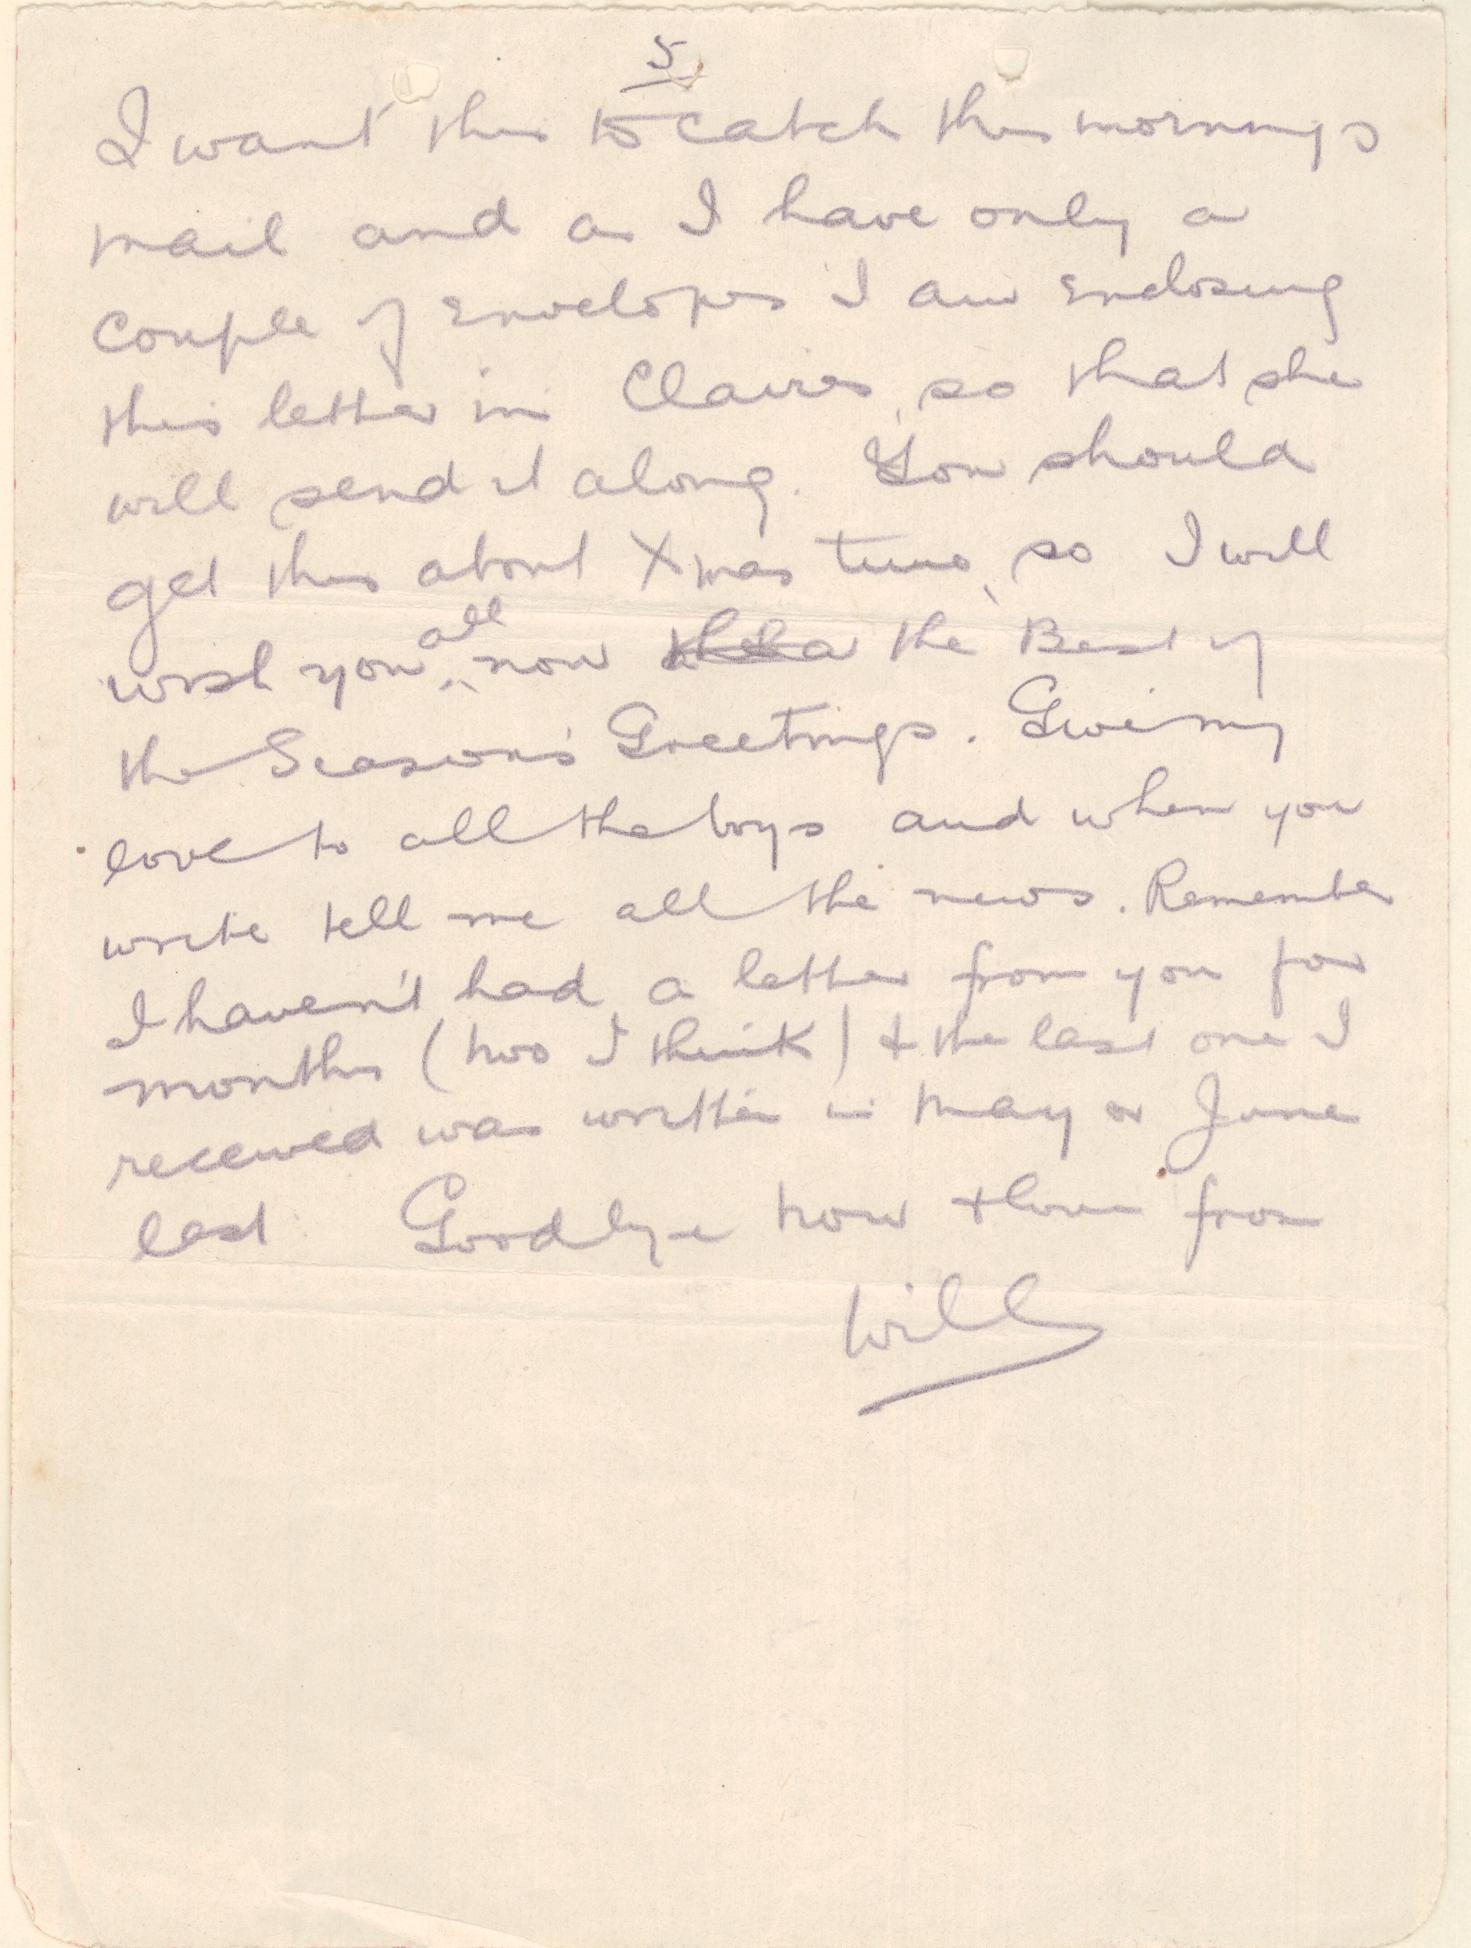 5
I want this to catch this mornings
mail and as I have only a
couple of envelopes I am enclosing
this letter in Claires, so that she
will send it along. You should
get this about Xmas time, so I will
wish you all now the Best of
the Season's Greetings. Give my
love to all the boys and when you
write tell me all the news. Remember
I haven't had a letter from you for
months (two I think) & the last one I
received was written in May or June
last. Goodbye now & love from
Will